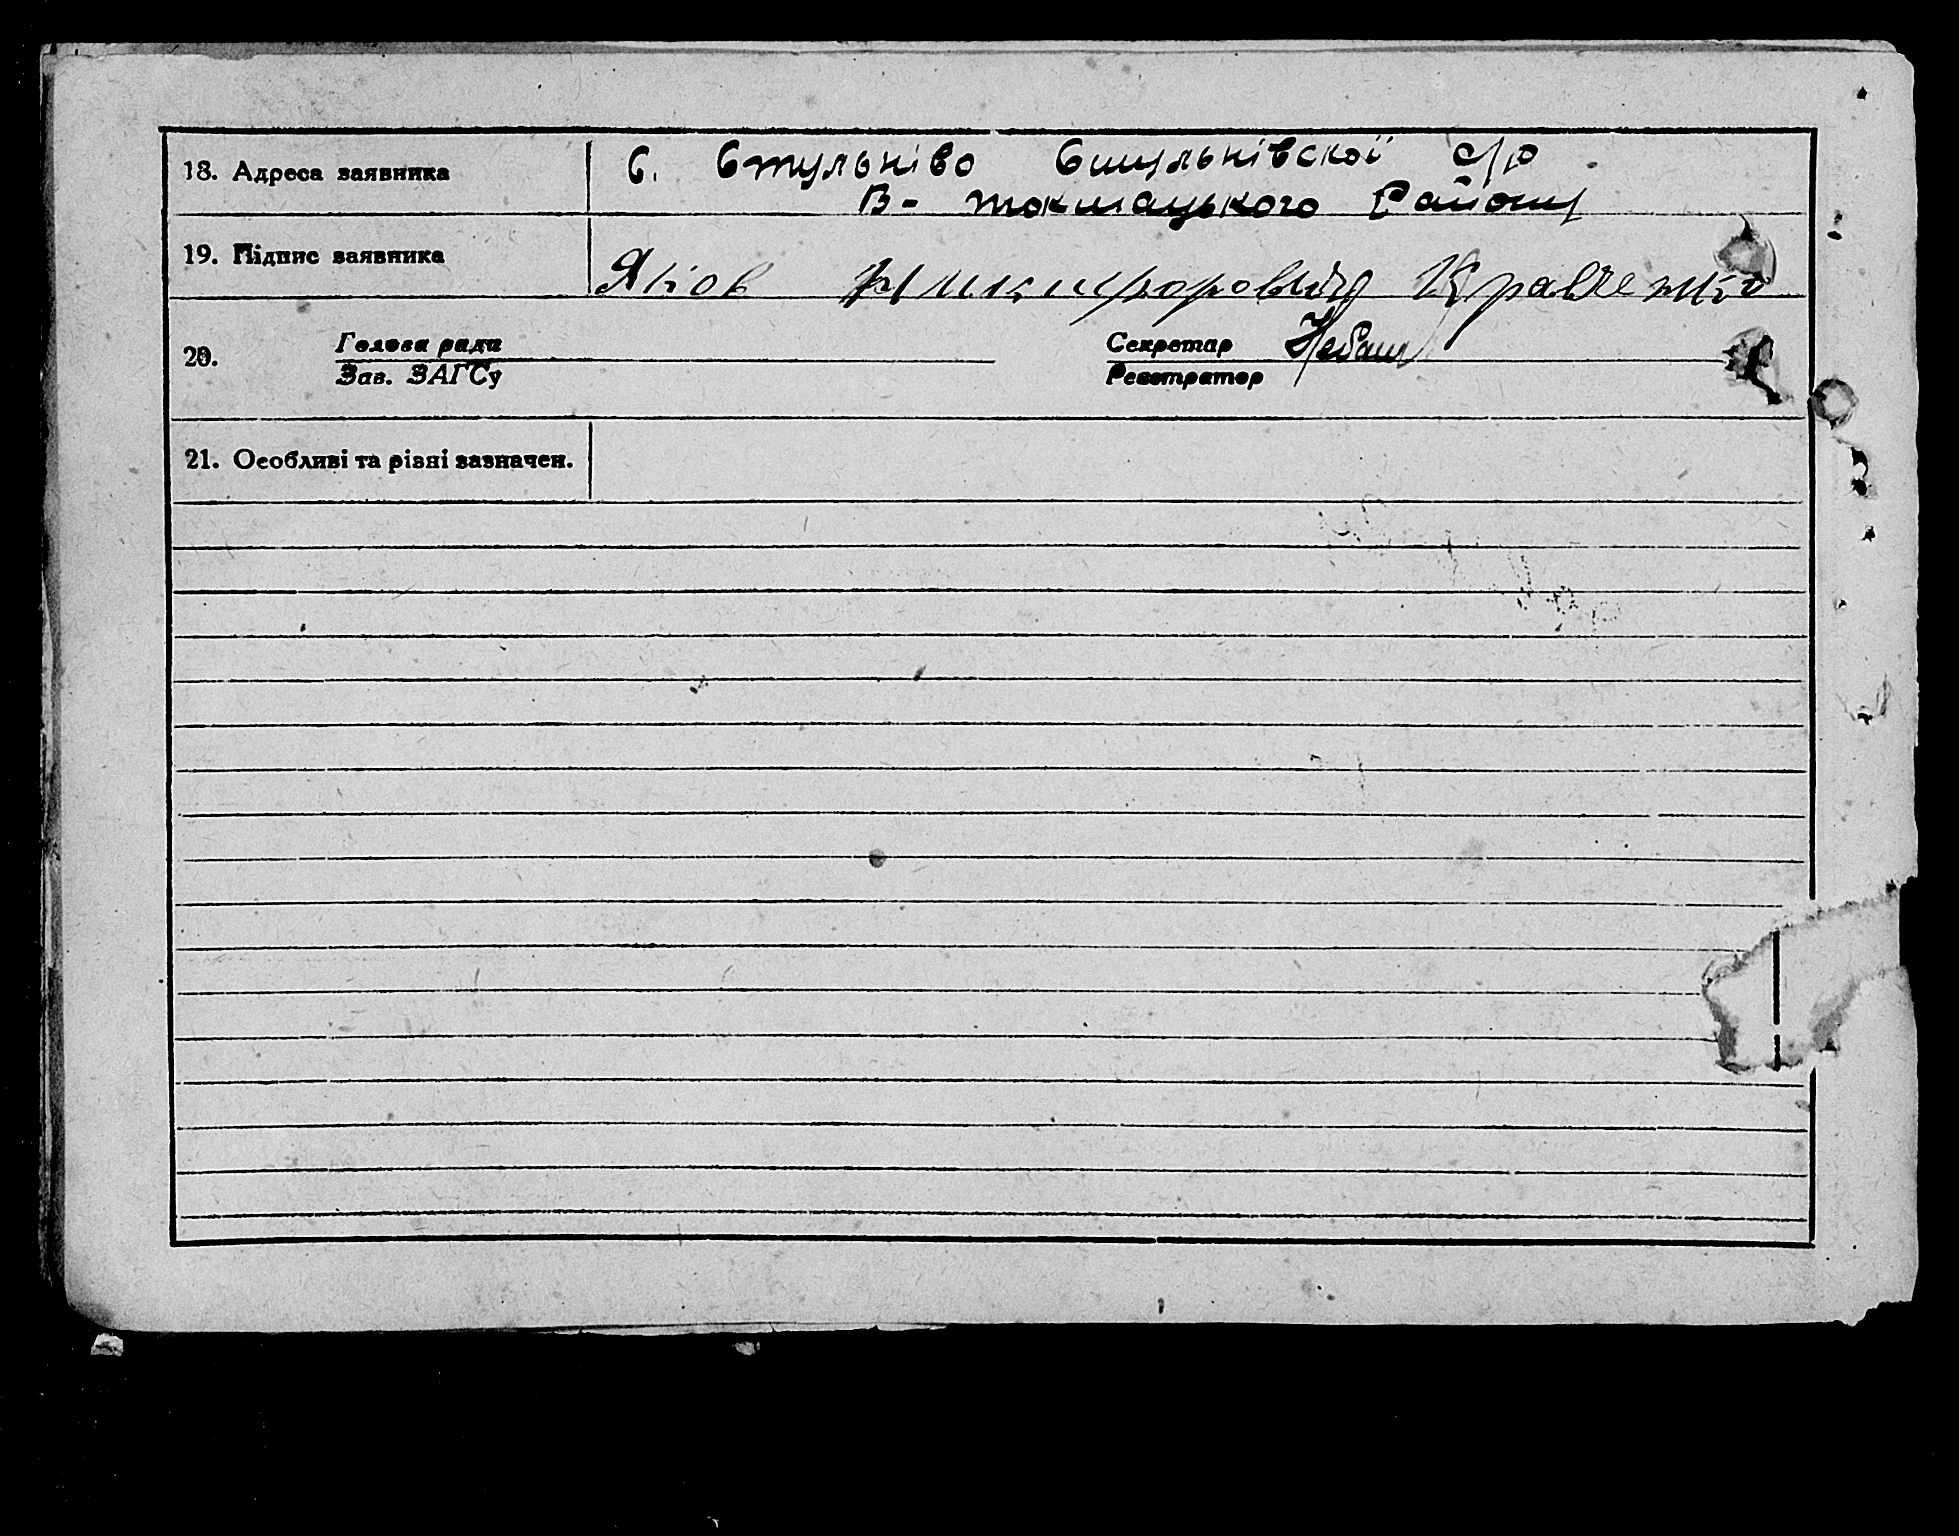 18. Адреса заявника С. Стульніво Стульнівскої с/р
В- Токмацького Району
19. Підпис заявника Яков Никифорович Кравченко
20. Голова ради Секретар
Зав. ЗАГСу Реєстратор
21. Особливі та різні зазначен.